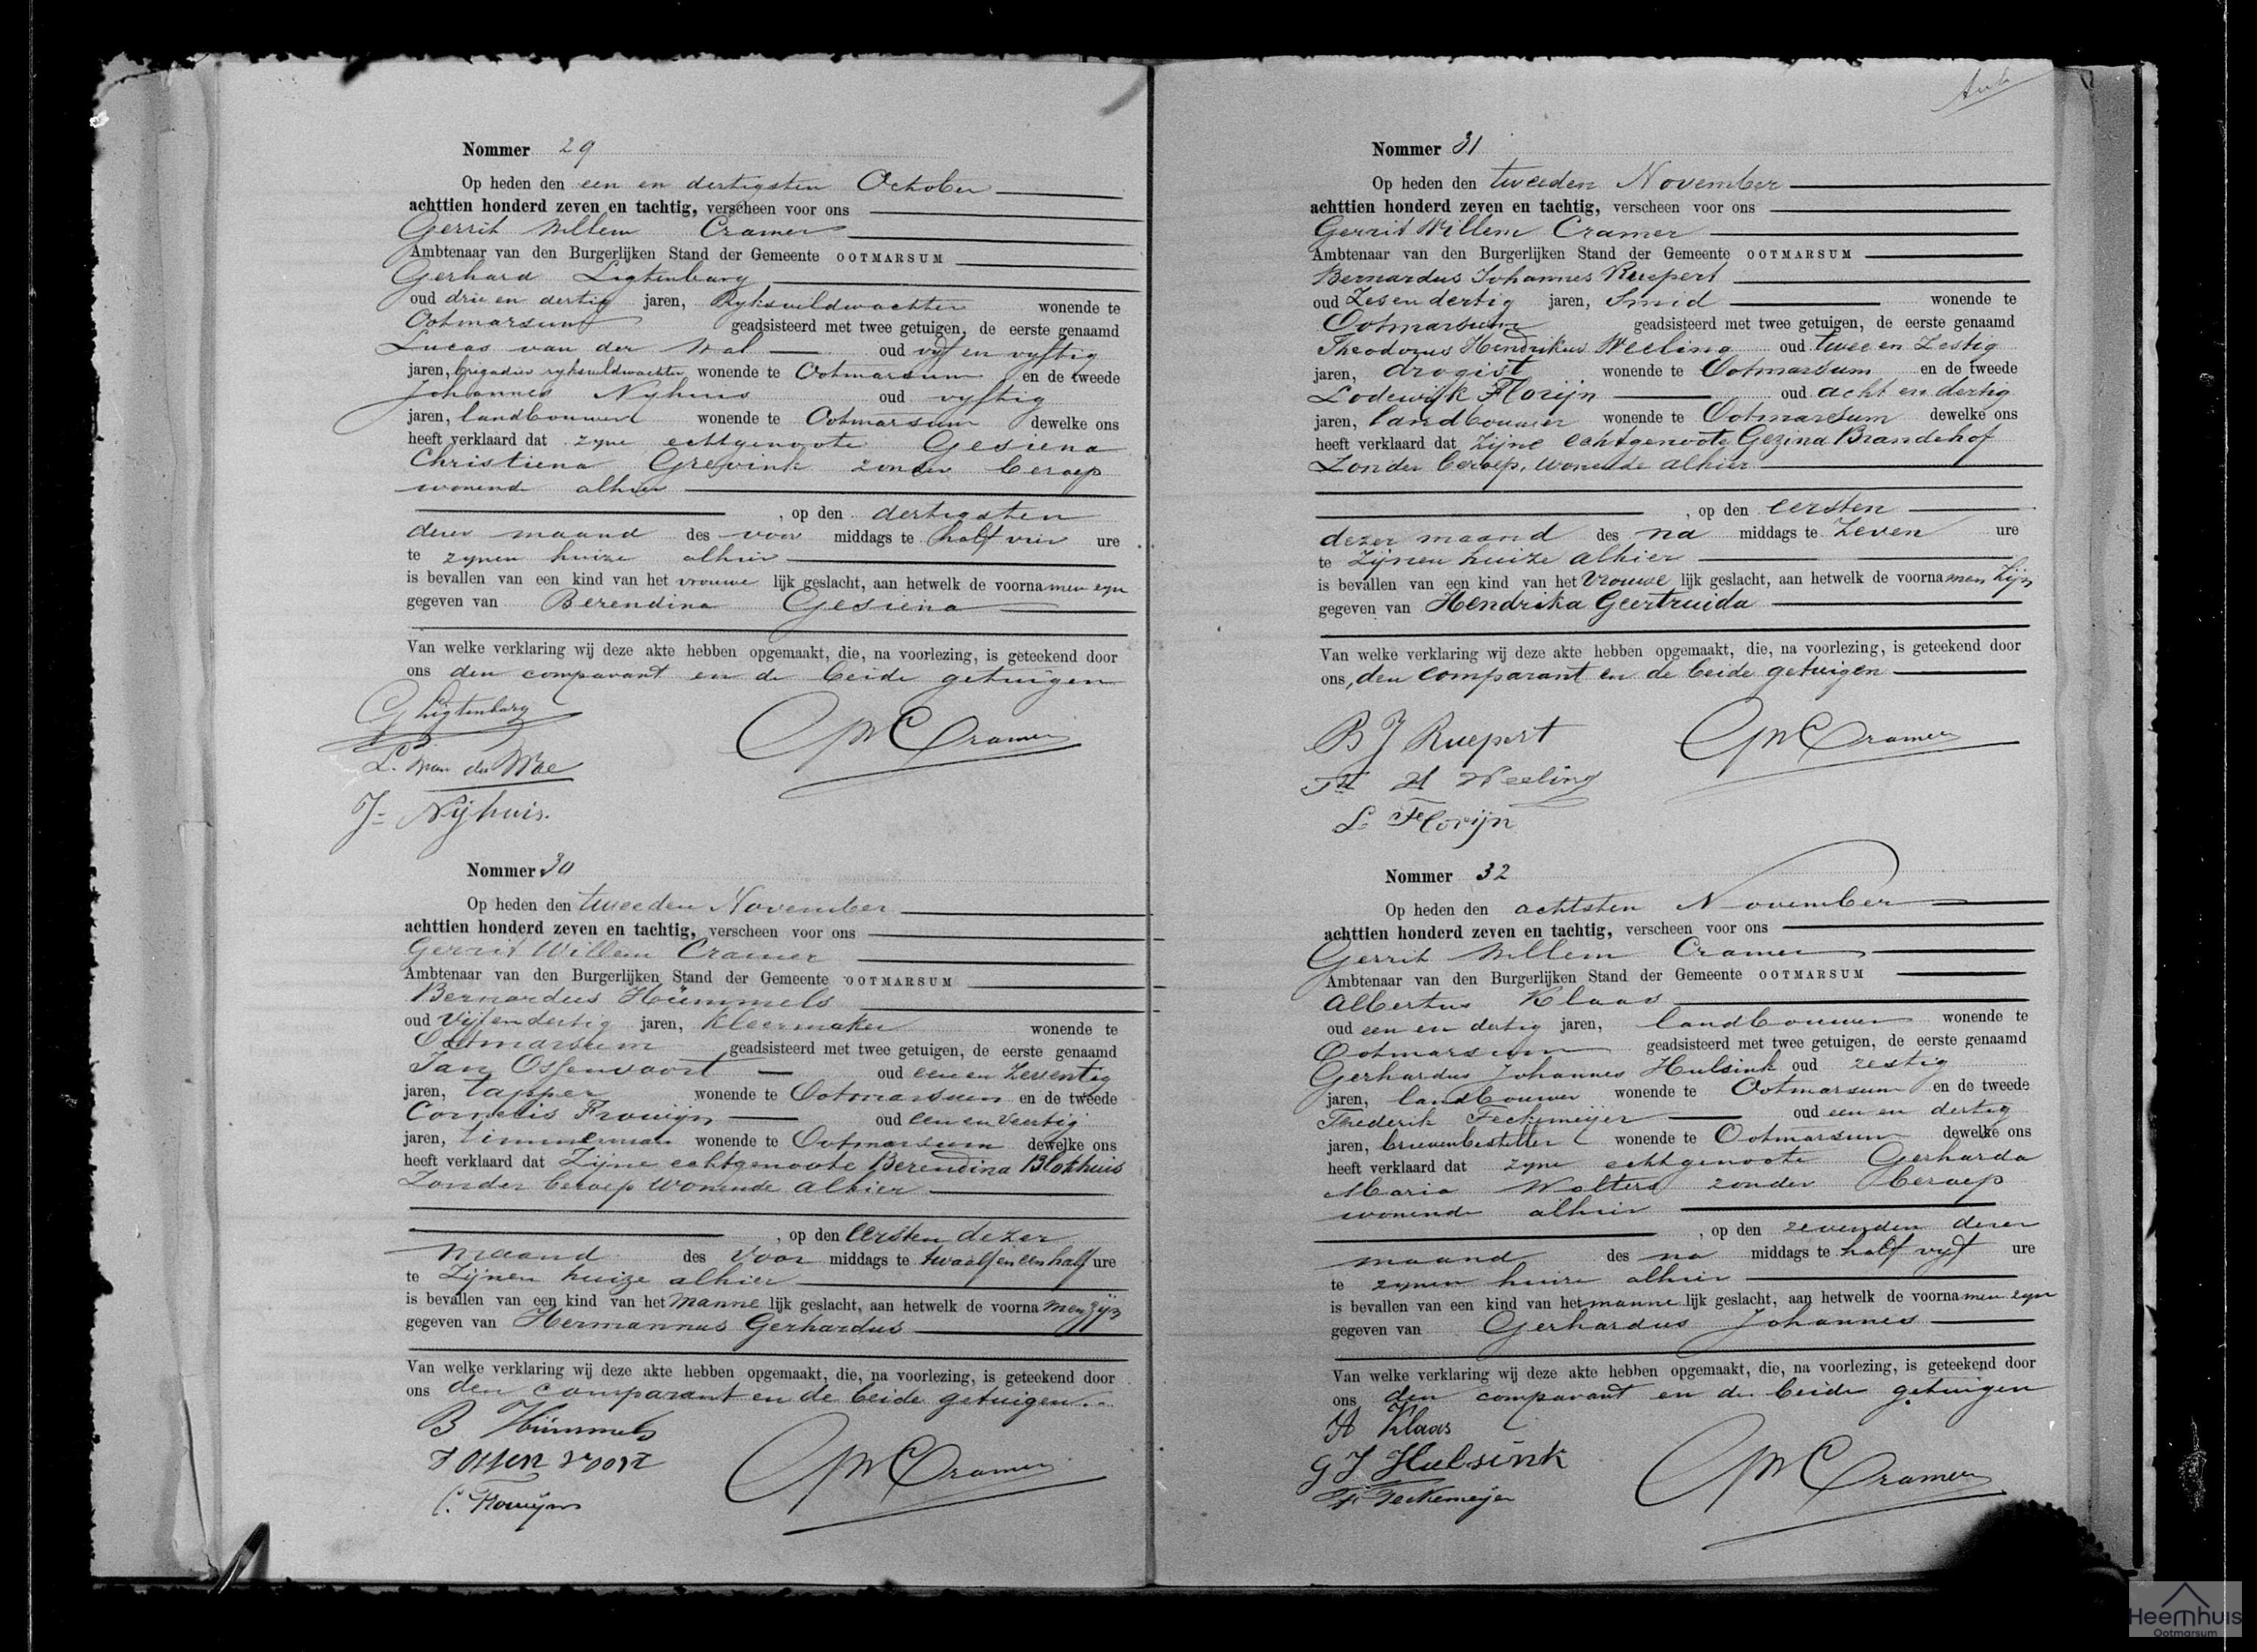 Nommer 29
Op heden den een en dertigsten October
achttien honderd zeven en tachtig, verscheen voor ons
Gerrit Willem Cramer
Ambtenaar van den Burgerlijken Stand der Gemeente OOTMARSUM
Gerhard Ligtenbarg
oud drie en dertig jaren, Ryksveldwachter wonende te
Ootmarsum geadsisteerd met twee getuigen, de eerste genaamd
Lucas van der Wal oud vyf en vyftig
jaren, brigadier ryksveldwachter wonende te Ootmarsum en de tweede
Johannes Nyhuis oud vyftig
jaren, landbouwer wonende te Ootmarsum dewelke ons
heeft verklaard dat zyne echtgenoote Gesiena
Christiena Grevink zonder beroep
wonende alhier
, op den dertigsten
dezer maand des voor middags te half vier ure
te zynen huize alhier
is bevallen van een kind van het vrouwe lijk geslacht, aan hetwelk de voornamen zyn
gegeven van Berendina Gesiena
Van welke verklaring wij deze akte hebben opgemaakt, die, na voorlezing, is geteekend door
ons den comparant en de beide getuigen
G Ligtenbarg
GW Cramer
L. van der Wal
J= Nijhuis.
Nommer 30
Op heden den tweeden November
achttien honderd zeven en tachtig, verscheen voor ons
Gerrit Willem Cramer
Ambtenaar van den Burgerlijken Stand der Gemeente OOTMARSUM
Bernardus Hümmels
oud Vijfendertig jaren, Kleermaker wonende te
Ootmarsum geadsisteerd met twee getuigen, de eerste genaamd
Jan Ossenvoort oud een en Zeventig
jaren, tapper wonende te Ootmarsum en de tweede
Cornelis Frowijn oud een en Veertig
jaren, timmerman wonende te Ootmarsum dewelke ons
heeft verklaard dat Zijne echtgenoote Berendina Blokhuis
Zonder beroep wonende alhier
, op den eersten dezer
maand des Voor middags te twaalf en een half ure
te Zijnen huize alhier
is bevallen van een kind van het manne lijk geslacht, aan hetwelk de voornamen zijn
gegeven van Hermannus Gerhardus
Van welke verklaring wij deze akte hebben opgemaakt, die, na voorlezing, is geteekend door
ons den comparant en de beide getuigen.
B Hümmels
J Ossen voort
GW Cramer
C. Frowijn
Nommer 31
Op heden den tweeden November
achttien honderd zeven en tachtig, verscheen voor ons
Gerrit Willem Cramer
Ambtenaar van den Burgerlijken Stand der Gemeente OOTMARSUM
Bernardus Johannes Ruepert
oud Zesendertig jaren, Smid wonende te
Ootmarsum geadsisteerd met twee getuigen, de eerste genaamd
Theodorus Hendrikus Weeling oud twee en Zestig
jaren, drogist wonende te Ootmarsum en de tweede
Lodewijk Florijn oud acht en dertig
jaren, landbouwer wonende te Ootmarsum dewelke ons
heeft verklaard dat Zijne echtgenoote Gezina Brandehof
Zonder beroep, wonende alhier
, op den eersten
dezer maand des na middags te Zeven ure
te Zijnen huize alhier
is bevallen van een kind van het Vrouwe lijk geslacht, aan hetwelk de voornamen Zijn
gegeven van Hendrika Geertruida
Van welke verklaring wij deze akte hebben opgemaakt, die, na voorlezing, is geteekend door
ons, den comparant en de beide getuigen
B J Ruepert
GW Cramer
Th H Weeling
L. Florijn
Nommer 32
Op heden den achtsten November
achttien honderd zeven en tachtig, verscheen voor ons
Gerrit Willem Cramer
Ambtenaar van den Burgerlijken Stand der Gemeente OOTMARSUM
Albertus Klaas
oud een en dertig jaren, landbouwer wonende te
Ootmarsum geadsisteerd met twee getuigen, de eerste genaamd
Gerhardus Johannes Hulsink oud zestig
jaren, landbouwer wonende te Ootmarsum en de tweede
Frederik Feckemeijer oud een en dertig
jaren, brievenbesteller wonende te Ootmarsum dewelke ons
heeft verklaard dat zyne echtgenoote Gerharda
Maria Wolters zonder beroep
wonende alhier
, op den zevenden dezer
maand des na middags te half vyf ure
te zynen huize alhier
is bevallen van een kind van het manne lijk geslacht, aan hetwelk de voornamen zyn
gegeven van Gerhardus Johannes
Van welke verklaring wij deze akte hebben opgemaakt, die, na voorlezing, is geteekend door
ons den comparant en de beide getuigen
A Klaas
G J Hulsink
GW Cramer
F. Feckemeijer
Heemhuis
Ootmarsum